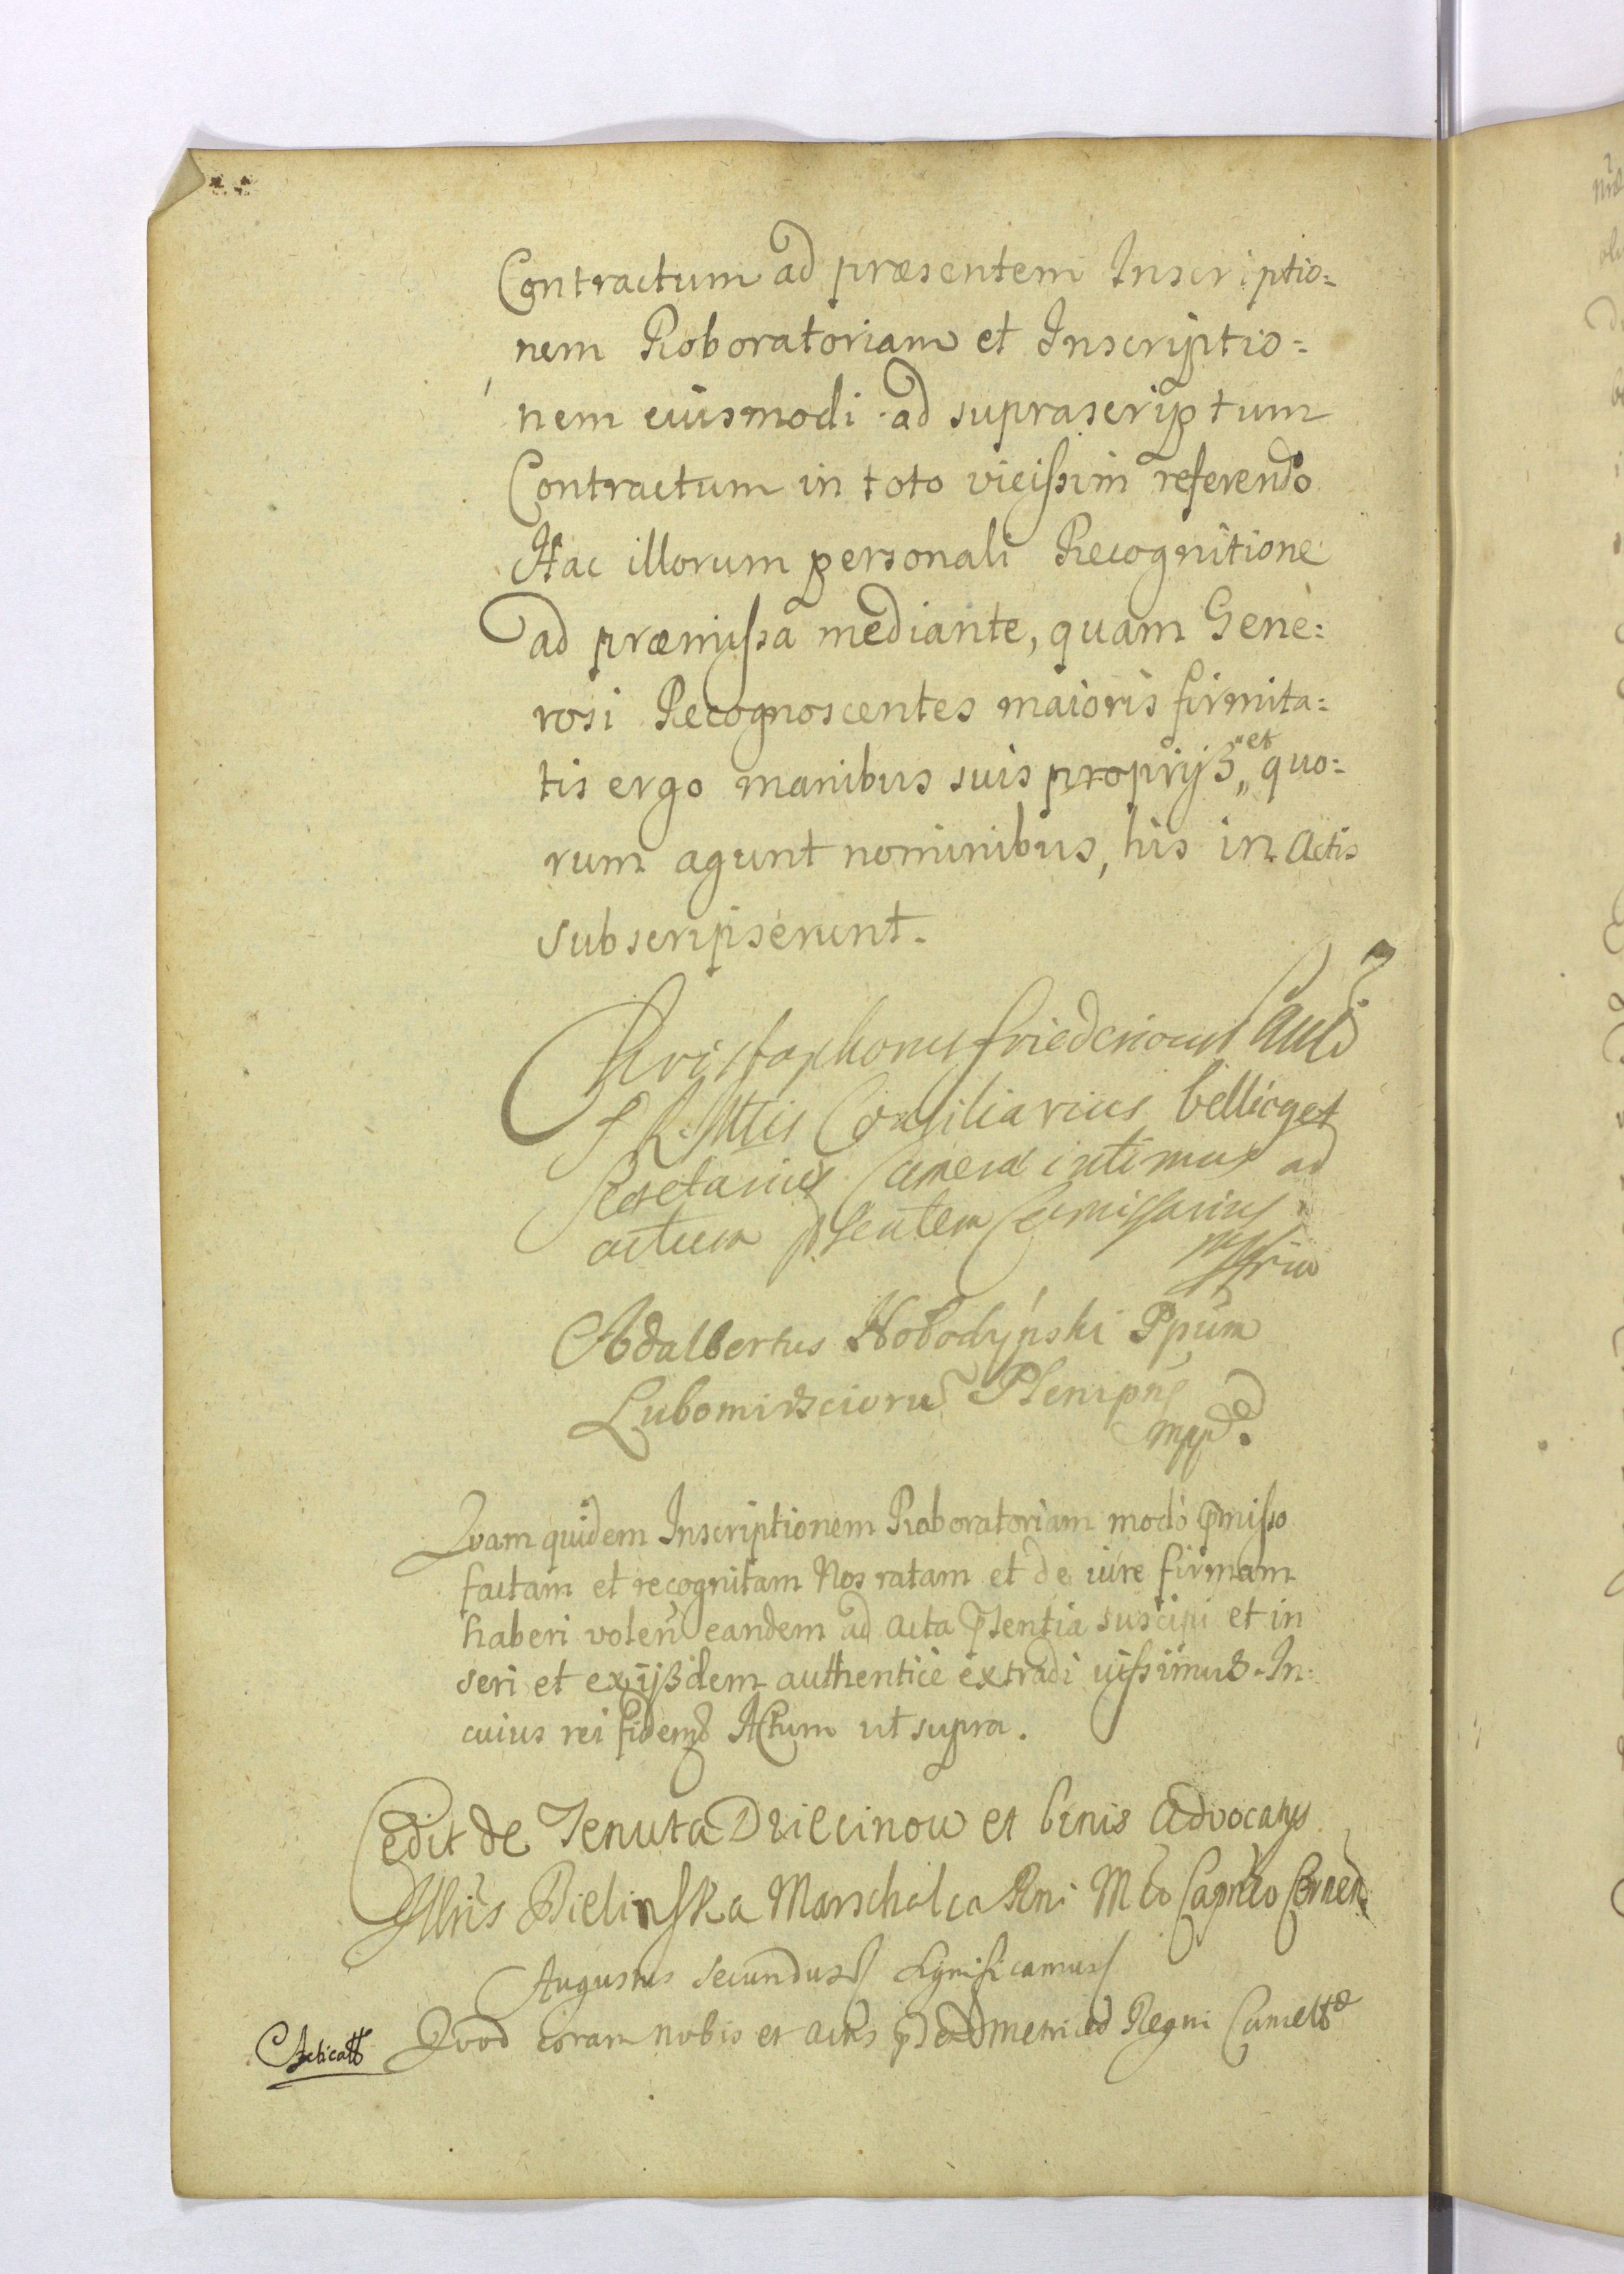 Contractum ad præsentem Inscriptio=
nem Roboratoriam et Inscriptio=
nem eiusmodi ad suprascriptum
Contractum in toto vicißim referendo
Hac illorum personali Recognitione
ad præmißa mediante, quam Gene=
rosi Recognoscentes maioris firmita=
tis ergo manibus suis proprijs „et quo=
rum agunt nominibus, his in Actis
subscripserunt.
Christophorus Friedericus
S R Mttis Consiliarius bellicq et
Secretarius Cameræ intimus ad
actum psentem Comissarius
mppria
Adalbertus Hobodyński Ppum
Lubomirsciorũ Plenipns
mpp.
Quam quidem Inscriptionem Roboratoriam modo pmisso
factam et recognitam Nos ratam et de iure firmam
haberi volen eandem ad acta psentia suscipi et in
seri et ex ijsdem authentice extradi iussimus. In
cuius rei fidem Actum ut supra.
Cedit de Tenuta et bonis Advocatijs
Illris Bielinska Marschalca Rni
Augustus Secundus Significamus
Quod coram nobis et actis Metrices Regni Cancell